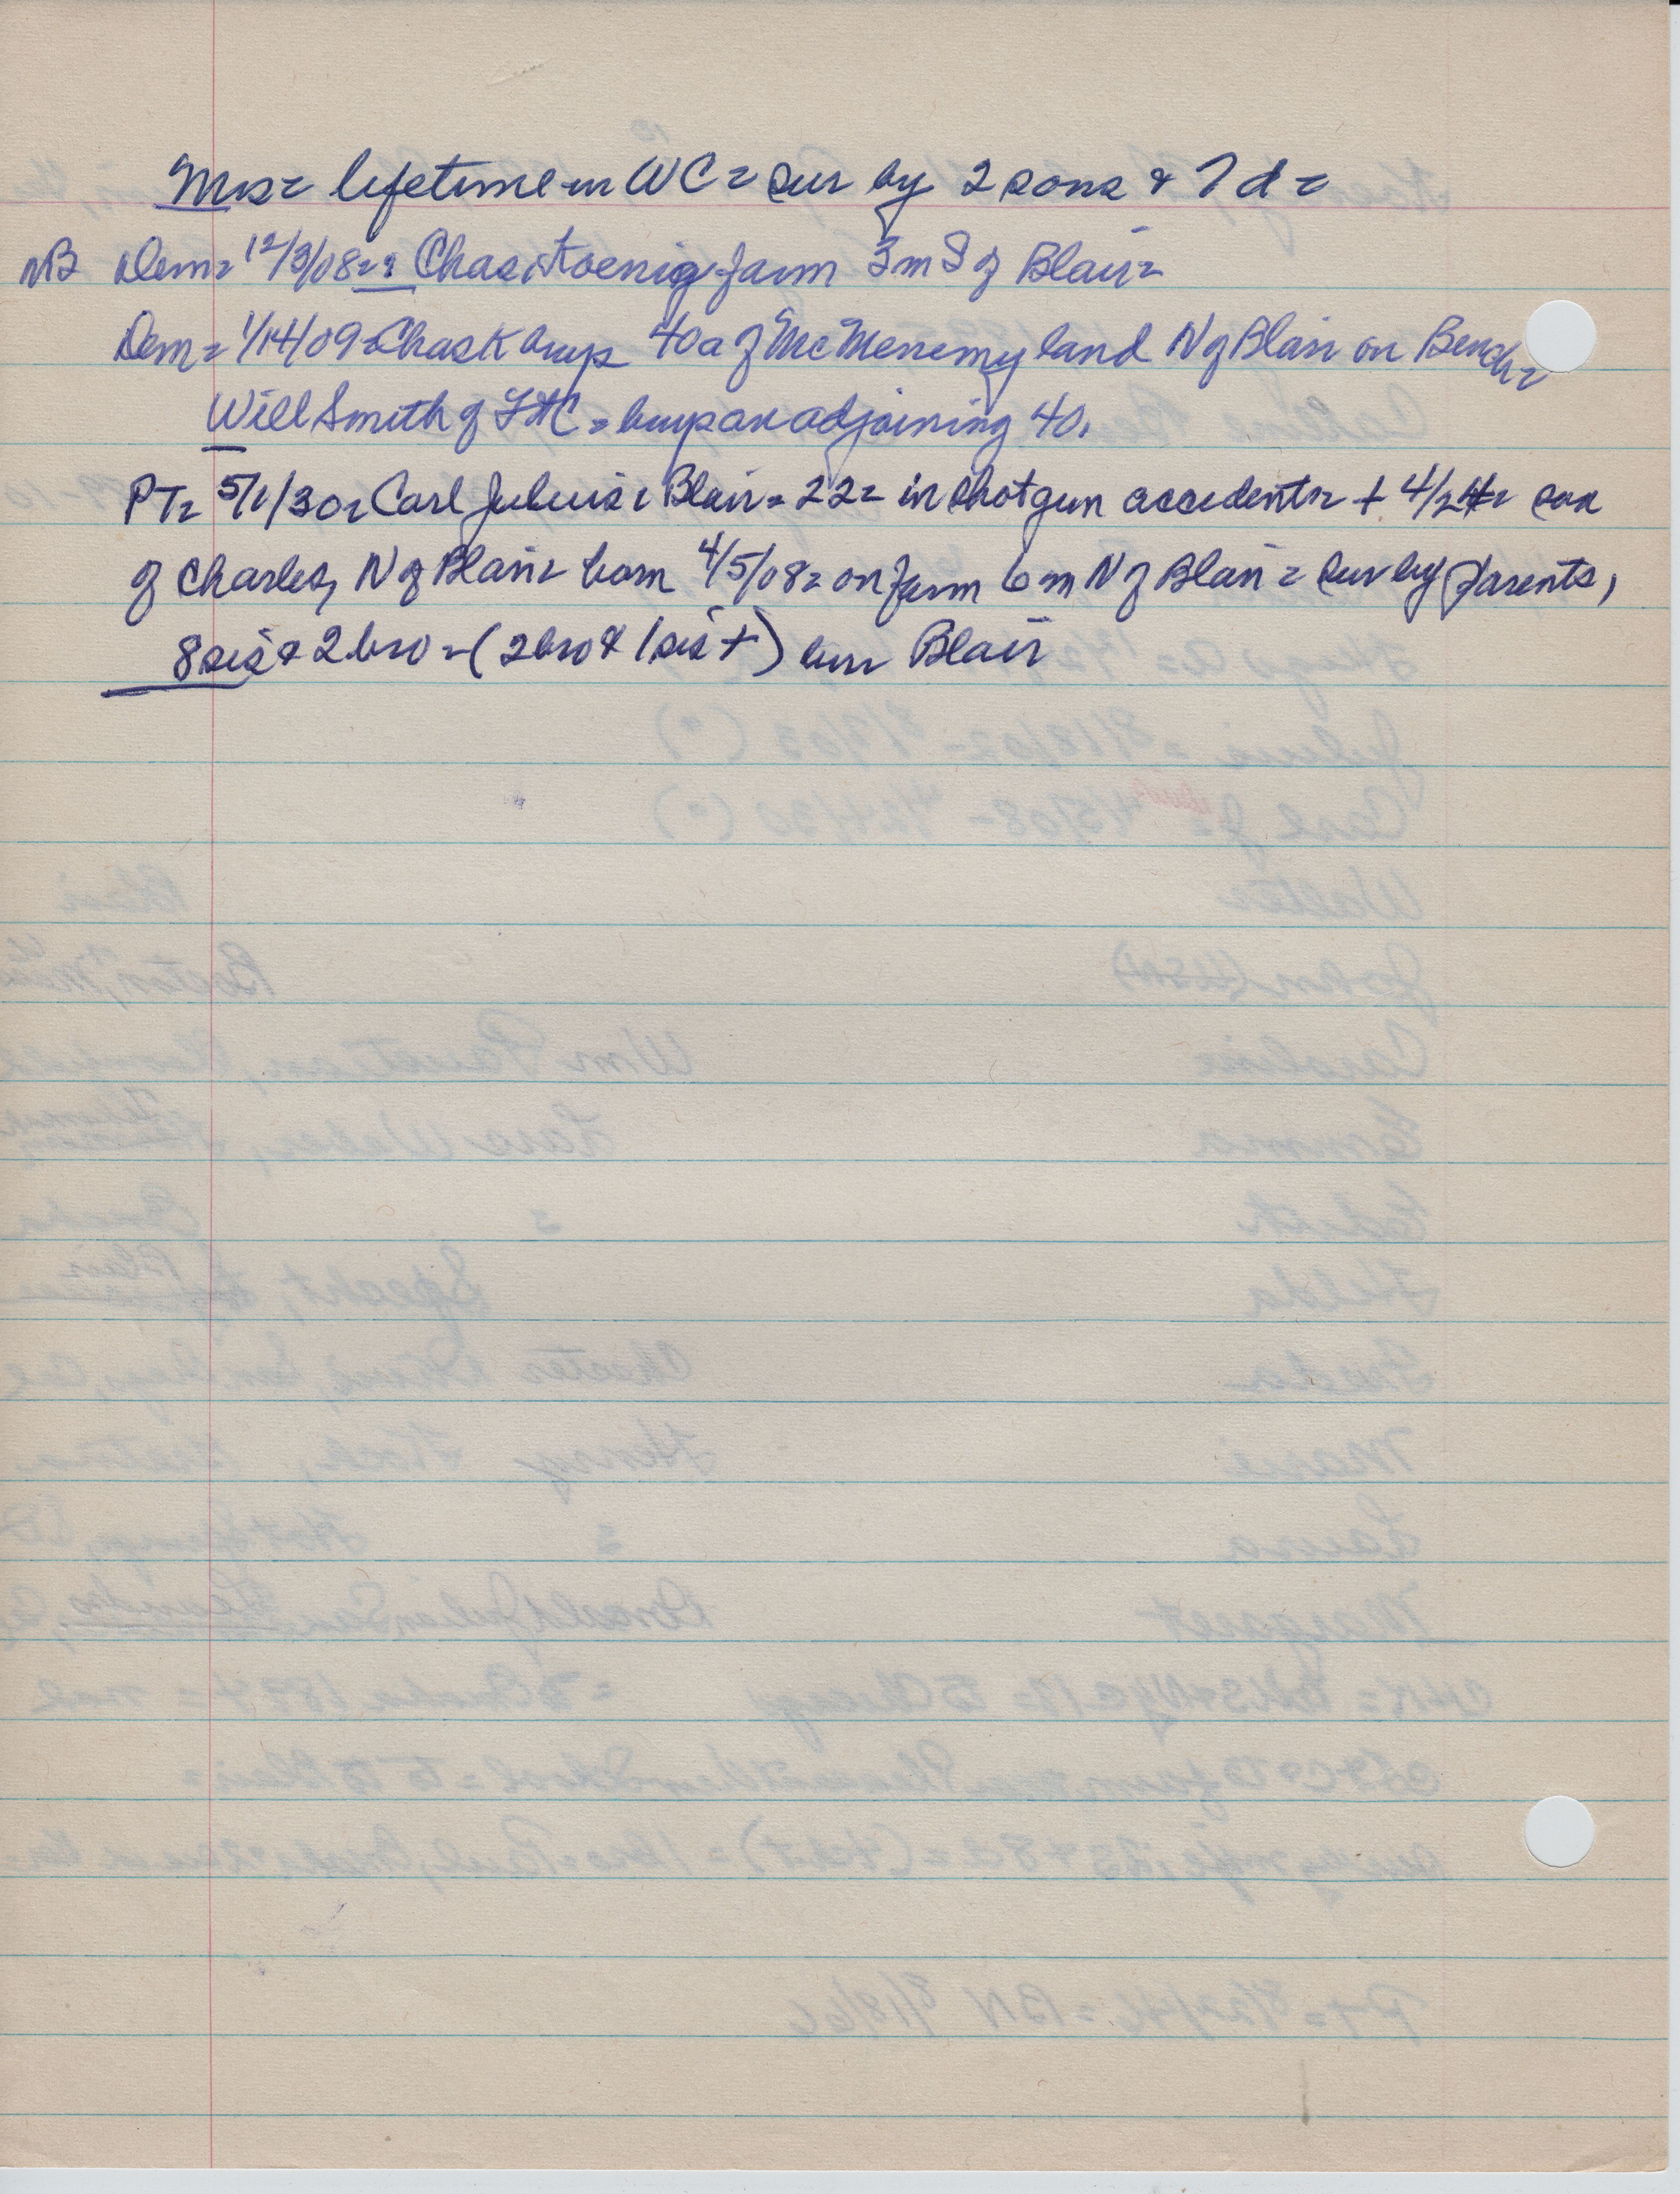 Mrs = lifetime in WC = sur by 2 sons & 7 d =
NB Dem = 12/3/08 = = Chas Koenig farm 3 m S of Blair =
Dem = 1/14/09 = Chas K buys 40a of McMenemy land N of Blair on Bench =
Will Smith of FtC = buys an adjoining 40.
PT = 5/1/30 = Carl Julius = Blair = 22 = in shotgun accident = + 4/24 = son
of Charles, N of Blair = born 4/5/08 = on farm 6 m N of Blair = sur by parents,
8 sis & 2 bro = (2 bro & 1 sis +) bur Blair